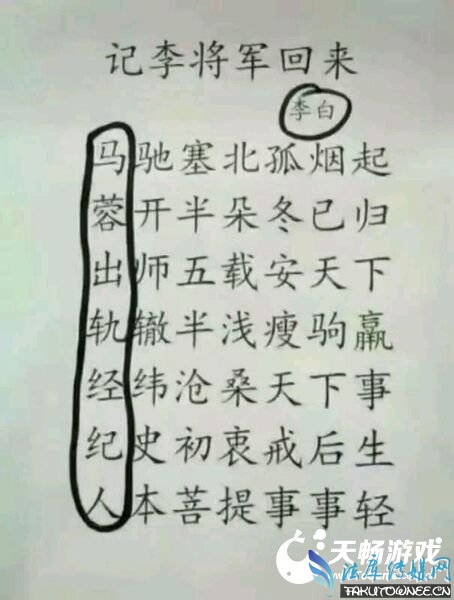 记李将军回来
李白
马驰塞北孤烟起
蓉开半朵冬已归
出师五载安天下
轨辙半浅瘦驹羸
经纬沧桑天下事
纪史初衷戒后生
人本菩提事事轻
天畅游戏
法库传媒网
TAKUTOWNEE.COM